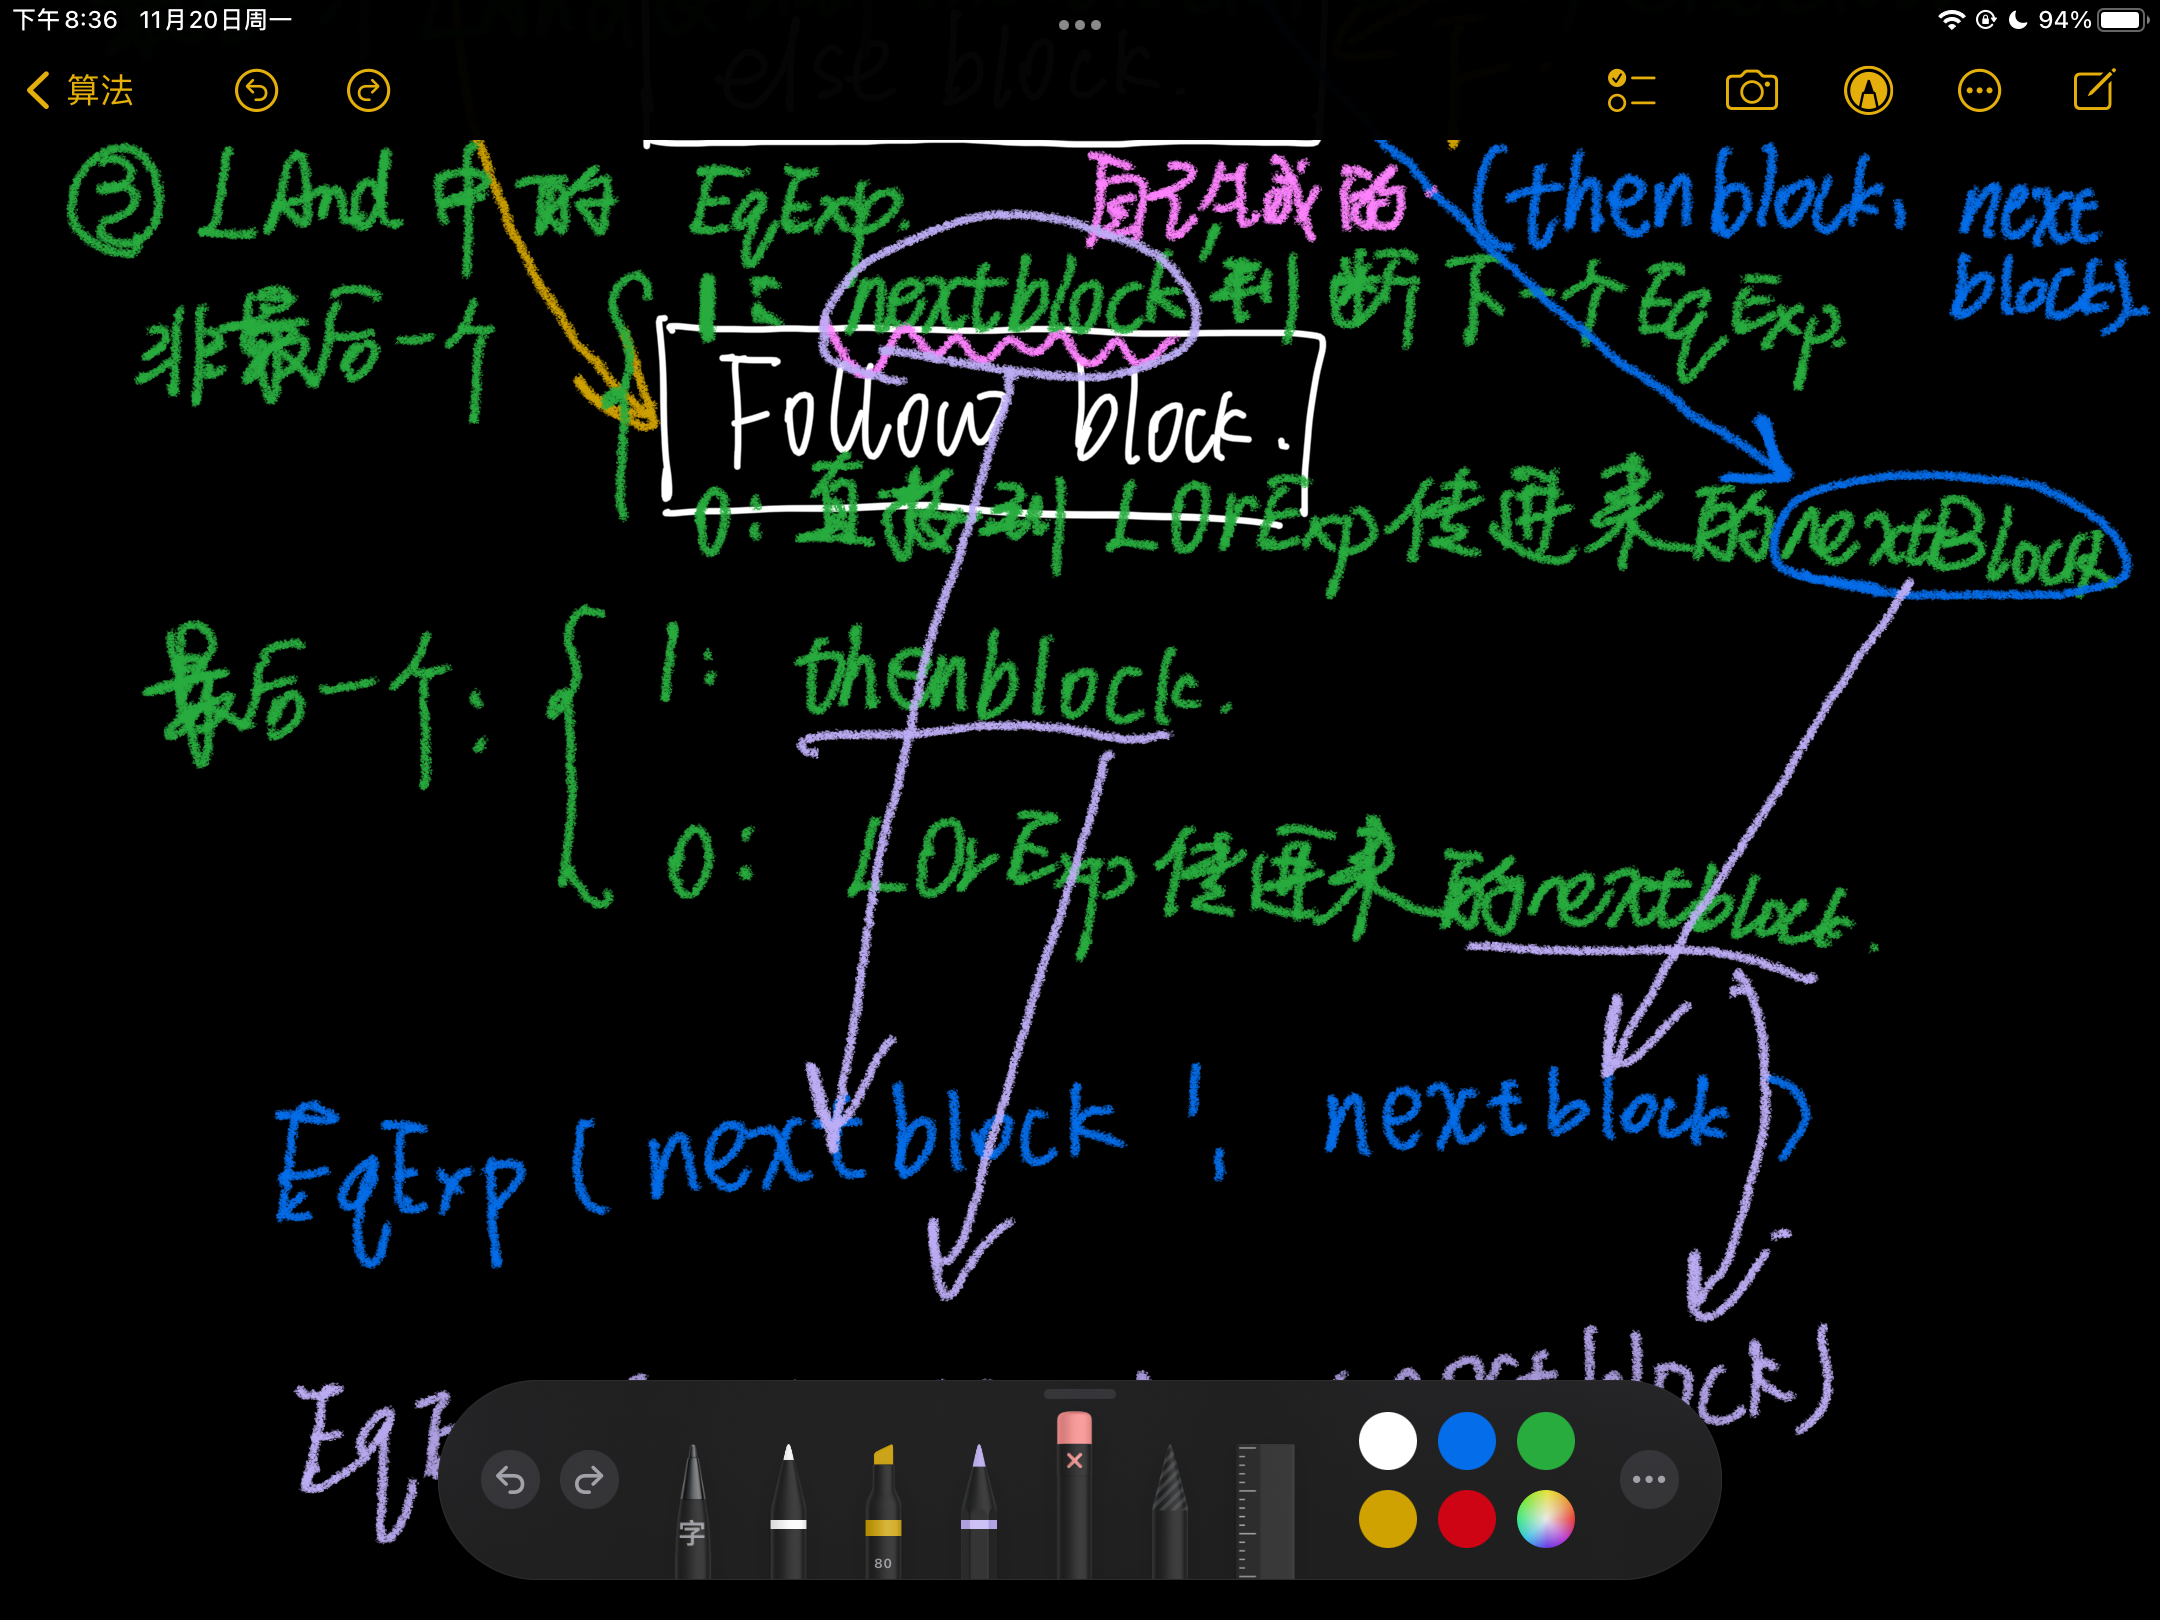 下午8:36 11月20日周一
94%
算法
else block.
③ LAnd 中的 EqExp. 自己生成的. (thenblock, next block).
非最后一个 { 1: nextblock' 判断下一个EqExp.
Follow block.
0: 直接到 LOrExp传进来的nextBlock
最后一个: { 1: thenblock.
0: LOrExp传进来的nextblock.
EqExp (nextblock', nextblock)
nextblock)
字
80